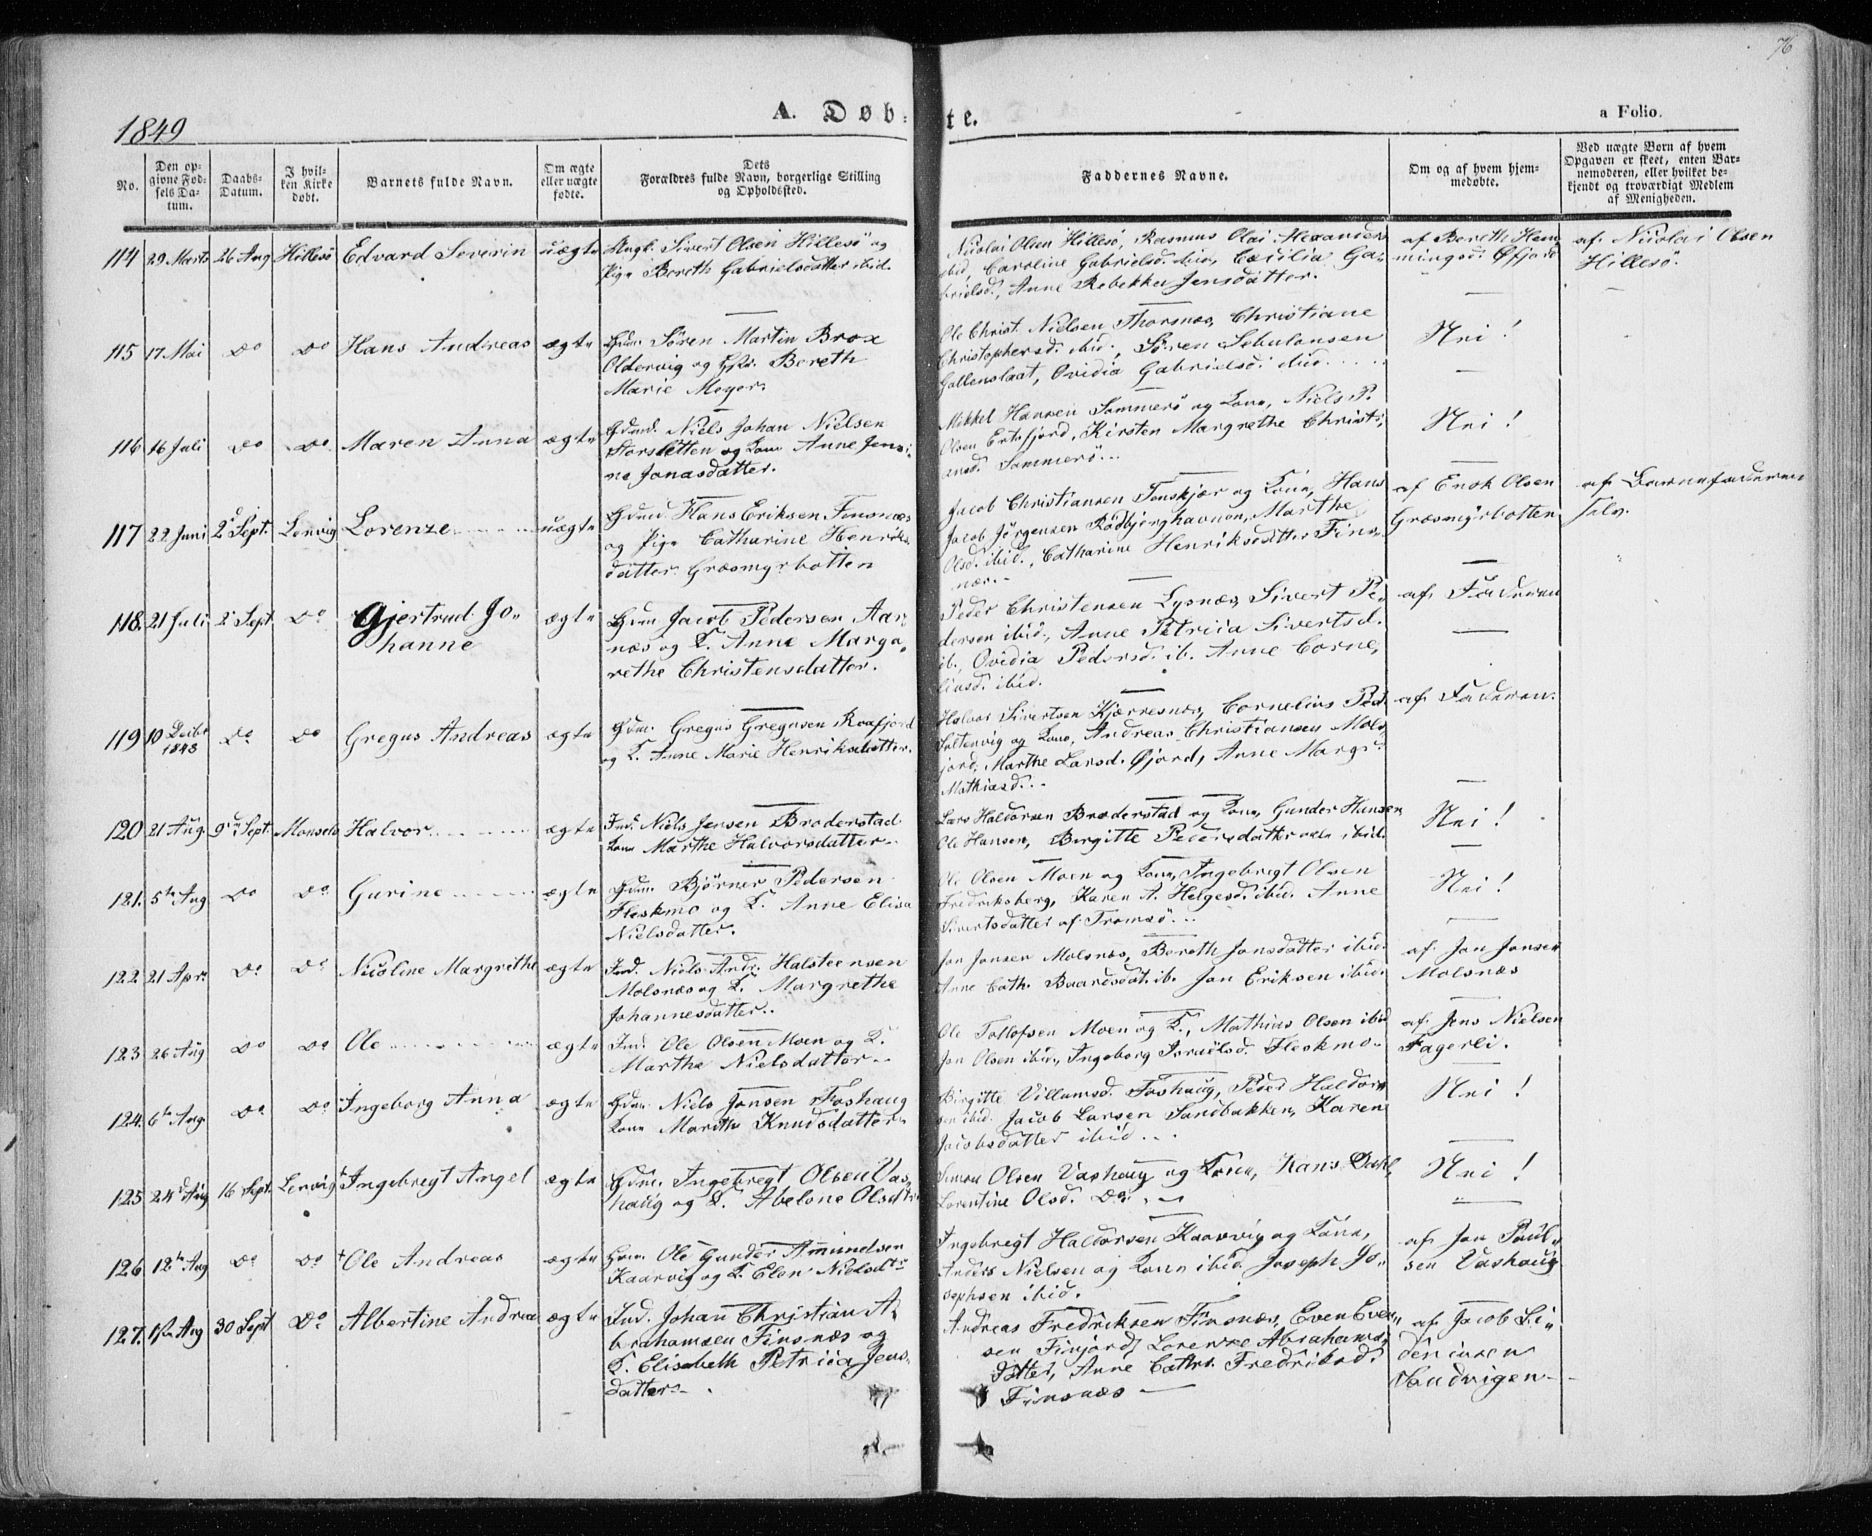 76
1849
A. Døb-
te.
a Folio.
No.
Den op-
givne Fød-
sels Da-
tum.
Daabs-
Datum.
I hvil-
ken Kirke
døbt.
Barnets fulde Navn.
Om ægte
eller uægte
fødte.
Dets
Forældres fulde Navn, borgerlige Stilling
og Opholdssted.
Faddernes Navne.
Om og af hvem hjem-
medøbte.
Ved uægte Børn af hvem
Opgaven er skeet, enten Bar-
nemoderen, eller hvilket be-
kjendt og troværdigt Medlem
af Menigheden.
114 29 Marts 26 Aug Hillesö Edvard Severin uægte
Ungk. Sivert Olsen Hillesö og
Pige Bereth Gabrielsdatter ibid.
Nicolai Olsen Hillesö, Rasmus Olai
ibid, Caroline Gabrielsd. ibid, Cæcilia Ga-
brielsd., Anne Rebekka Jensdatter.
af Bereth Hem
mingsd. Øfjord
af Nicolai Olsen
Hillesö.
115 17 Mai Do Do Hans Andreas ægte
Gdm. Sören Martin Brox
Oldervig og Hstr. Bereth
Marie Meyer.
Ole Christ. Nielsen Thorsnæs, Christiane
Christophersd. ibid., Sören
Ovidia Gabrielsd. ibid.
Nei!
116 16 Juli Do Do Maren Anna ægte
Gdmd. Niels Johan Nielsen
Storsletten og Kone Anne Jensi-
ne Jonasdatter.
Mikkel Hansen Sommerö og Kone, Niels P.
Olsen Ertsfjord, Kirsten Margrethe Christi-
ansd. Sommerö.
Nei!
117 22 Juni 2d Sept. Lenvig Lorenze uægte
Gdmd. Hans Eriksen Finsnæs
og Pige Catharine Henriks-
datter Græsmyrbotten
Jacob Christiansen Tenskjær og Kone, Hans
Jacob Jörgensen Rödbjerghavnen, Marthe
Olsd. ibid., Catharine Henriksdatter Fins-
næs.
af Enok Olsen
Græsmyrbotten
af Barnefaderen
selv.
118. 21 Juli 2d Sept Do Gjertrud Jo-
hanne
ægte
Gdm Jacob Pedersen Aar-
næs og K. Anne Marga-
rethe Christensdatter.
Peder Christensen Lysnæs, Sivert Pe-
dersen ibid., Anne Petricia Sivertsd.
ib., Ovidia Pedersd. ib. Anne Corne-
liusd. ibid.
af Faderen
119 10 Decbr
1848 Do Do Gregus Andreas ægte
Gdm. Gregus Gregusen Roxfjord
og K. Anne Marie Henriksdatter.
Halvor Sivertsen Kjærresnæs, Cornelius Ped.
og Kone, Andreas Christiansen
Marthe Larsd. Øjord, Anne Marg.
Mathiasd.
af Faderen.
120 21 Aug. 9d Sept. Monselv Halvor ægte
Ind. Niels Jensen Broderstad
Kone Marthe Halvorsdatter
Lars Haldorsen Bræderstad og Kone, Gunder Hansen
Ole Hansen, Birgitte Pedersdatter alle ibid.
Nei!
121. 5te Aug Do Do Gurine ægte
Gdm. Bjørner Pedersen
Fleskmo og K. Anne Elisa
Nielsdatter.
Ole Olsen Moen og Kone, Ingebregt Olsen
Fredriksberg, Karen A. Helgesd. ibid. Anne
Sivertsdatter af Tromsö.
Nei!
122 21 Apr. Do Do Nicoline Margrethe ægte
Ind. Niels Andr. Halsteensen
Molsnæs og K. Margrethe
Johannesdatter.
Jon Jonsen Molsnæs, Bereth Jonsdatter ibid.
Anne Cath. Baardsdat. ib. Jon Eriksen ibid.
af Jon Jonsen
Molsnæs
123 26 Aug Do Do Ole ægte
Ind. Ole Olsen Moen og K.
Marthe Nielsdatter
Ole Tollofsen Moen og K., Mathias Olsen ibid
Jon Olsen ibid., Ingeborg Israelsd. Fleskmo
af Jens Nielsen
Fagerli.
124. 6te Aug. Do Do Ingeborg Anna ægte
Gdm. Niels Jonsen Foshaug
Kone Marith Knudsdatter
Birgitte Villumsd. Foshaug, Peder Haldor-
sen ibid. Jacob Larsen Sandbakken, Karen
Jacobsdatter ibid.
Nei!
125 24d Aug 16 Sept. Lenvig Ingebregt Angel ægte
Gdm. Ingebregt Olsen Vas-
haug og K. Abelone Olsdtr
Simon Olsen Vashaug og Kone, Hans Dahl,
Lorentine Olsd. Do.
Nei!
126 12te Aug Do Do Ole Andreas ægte
Gdm. Ole Gunder Amundsen
Kaarvig og K. Elen Nielsdtr
Ingebregt Haldorsen Kaarvig og Kone,
Anders Nielsen og Kone ibid. Joseph Jo-
sephsen ibid.
af Jon Paul-
sen Vashaug
127. Aug 30 Sept Do Albertine Andrea ægte
Ind. Johan Christian A-
brahamsen Finsnæs og
K. Elisabeth Petricia Jens-
datter
Andreas Fredriksen Finsnæs, Even Even-
sen Finjord, Lorentze Abrahams-
datter, Anne Cathr. Fredriksd.
Finsnæs
af Jacob